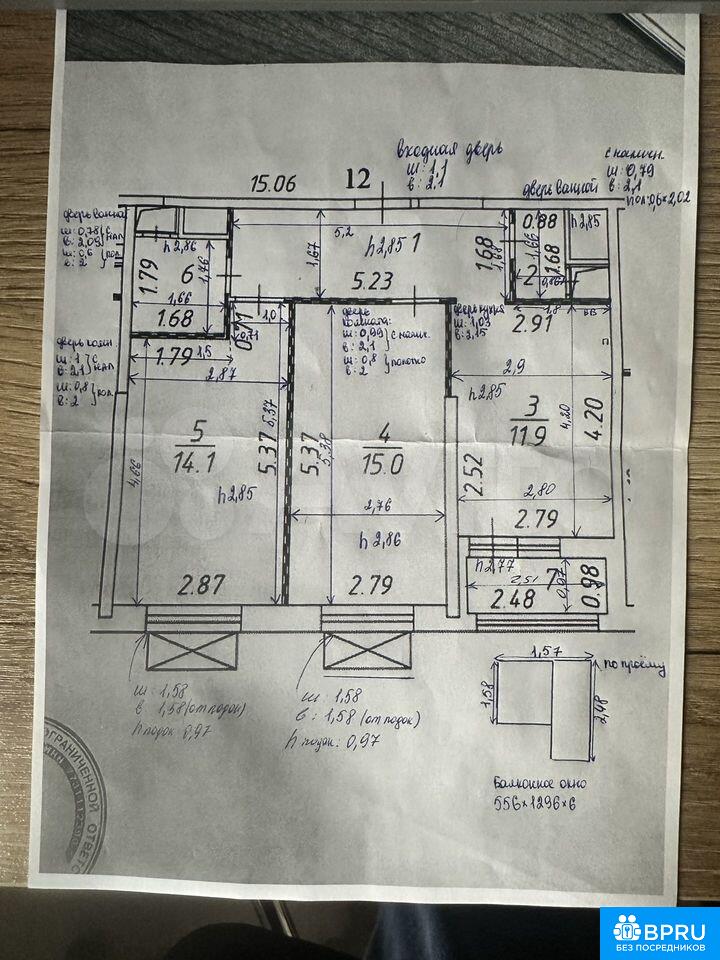 входная дверь
ш: 1,1
в: 2,1
15.06
12
с налич.
ш: 0,79
в: 2,1
пол: 0,6×2,02
дверь ванной
дверь ванна
ш: 0,78
в: 2,09
ш: 0,6
в: 2
h2,86
1.79
6
1,76
1,66
1.68
5,2
1,67
h2,85
1
5.23
1.68
1,68
0.88
1,66
2
2.68
0,86
h2,85
1,0
0.71
0,71
дверь
комната:
ш: 0,99
в: 2,1
с налич.
ш: 0,8
в: 2
полотно
дверь кухня
ш: 1,03
в: 2,15
1,8
2.91
2,9
h2,85
3
11.9
4,20
4.20
2.52
2,80
2.79
1.79
1,5
2,87
5
14.1
4,66
5,37
5.37
h2,85
2.87
4
15.0
5.37
5,38
2,76
h2,86
2.79
h2,77
7
2,51
2.48
0,97
0.98
ш: 1,58
в 1,58 (от подок)
h подок: 0,97
ш: 1,58
в: 1,58 (от подок)
h подок: 0,97
1,57
по проёму
1,58
2,48
Балконное окно
556×1296×6
ОГРАНИЧЕННОЙ ОТВЕТС
BPRU
БЕЗ ПОСРЕДНИКОВ